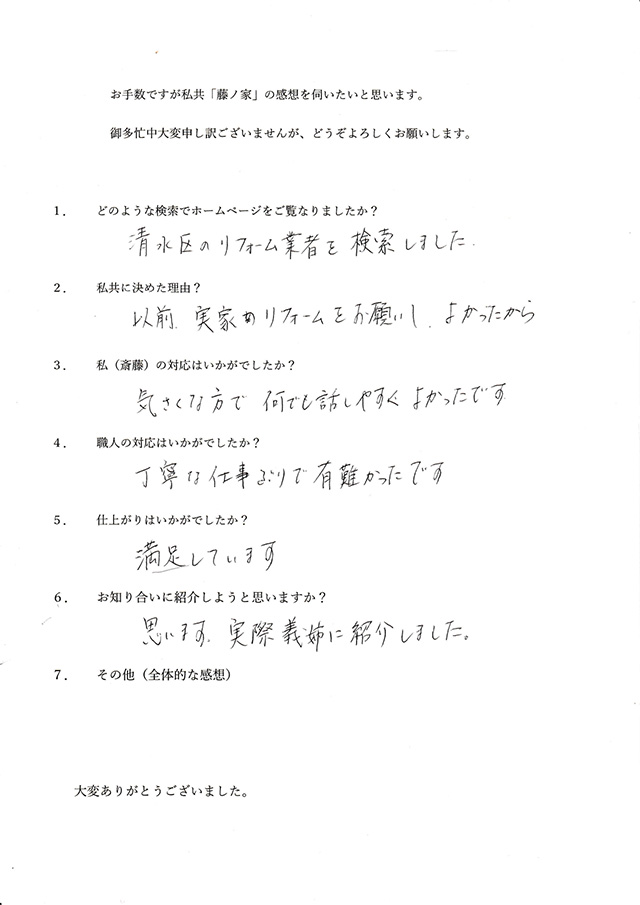 お手数ですが私共「藤ノ家」の感想を伺いたいと思います。
御多忙中大変申し訳ございませんが、どうぞよろしくお願いします。
1． どのような検索でホームページをご覧なりましたか？
清水区のリフォーム業者を検索しました.
2． 私共に決めた理由？
以前、実家のリフォームをお願いし、よかったから
3． 私（斎藤）の対応はいかがでしたか？
気さくな方で 何でも話しやすく よかったです
4． 職人の対応はいかがでしたか？
丁寧な仕事ぶりで有難かったです
5． 仕上がりはいかがでしたか？
満足しています
6． お知り合いに紹介しようと思いますか？
思います. 実際義姉に紹介しました。
7． その他（全体的な感想）
大変ありがとうございました。